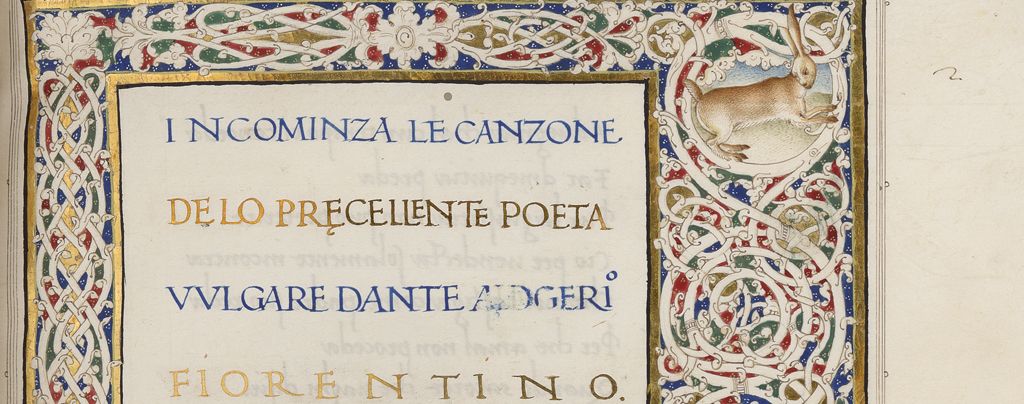 INCOMINZA LE CANZONE.
DE LO PRĘCELLENTE POETA
VVLGARE DANTE ALDGERI°
FIORENTINO.
2